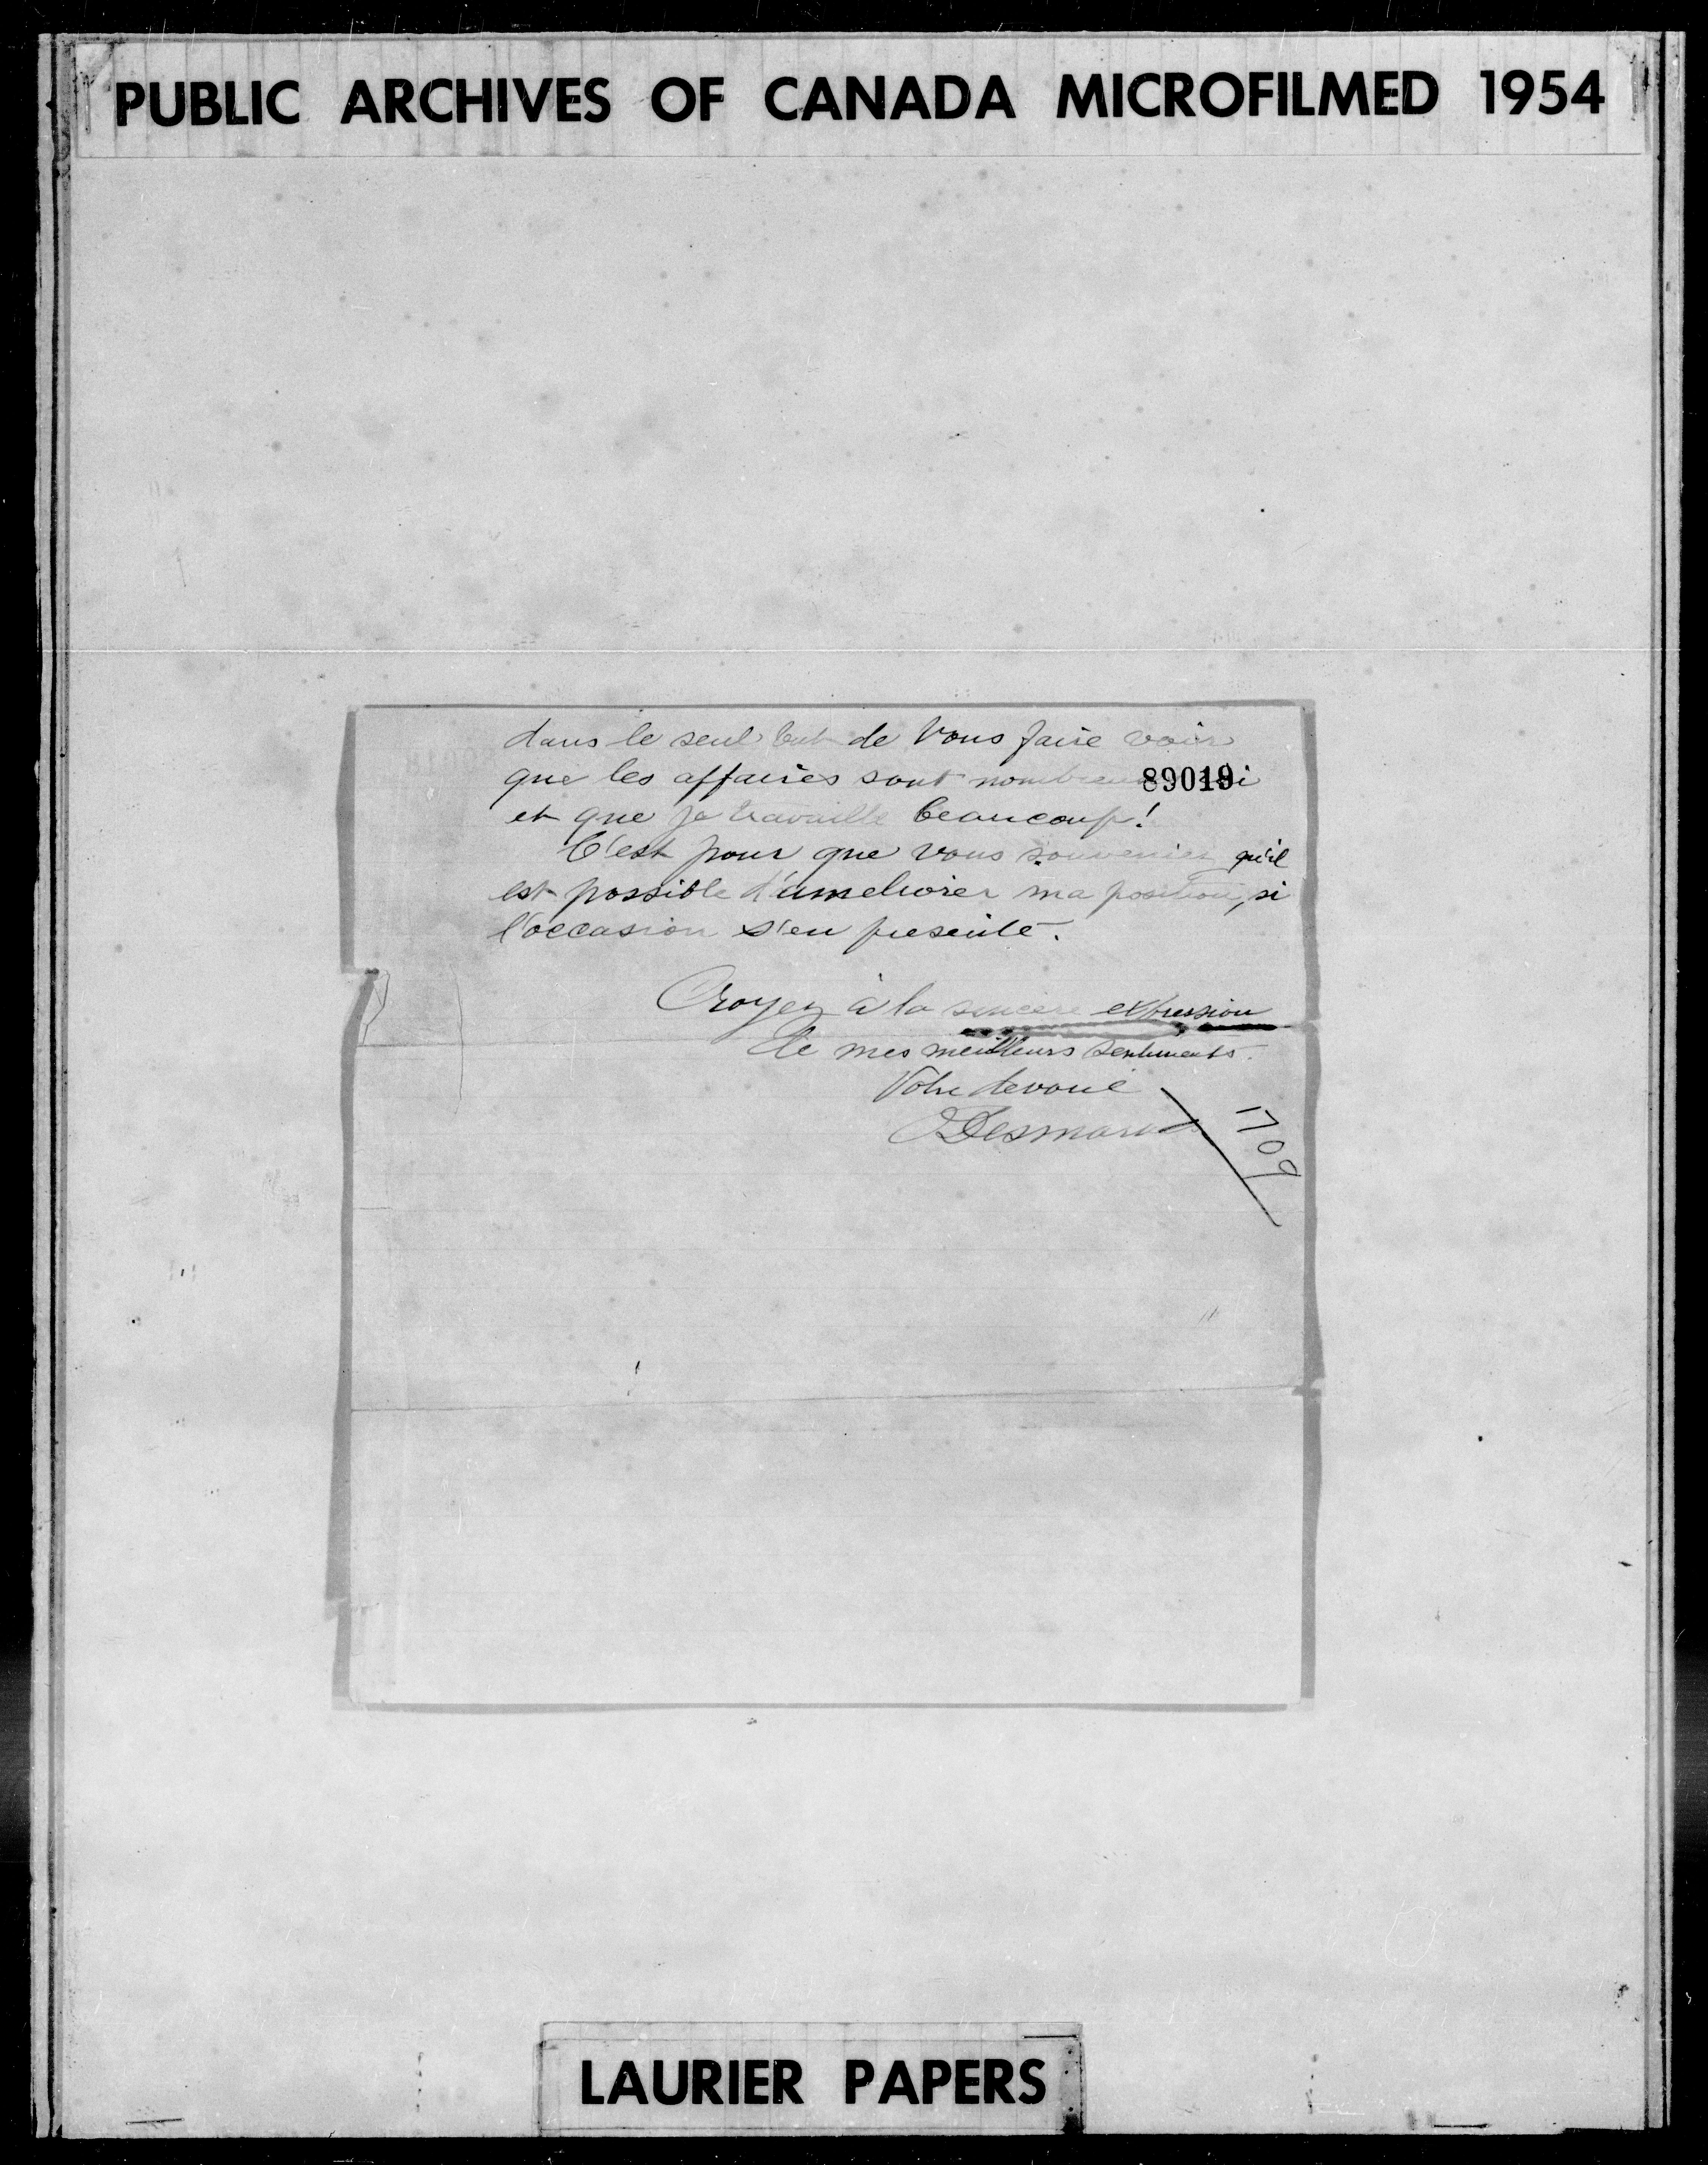 PUBLIC ARCHIVES OF CANADA MICROFILMED 1954
dans le seul but de vous faire voir
que les affaires sont 89019 ici
et que je travaille beaucoup!
C'est pour que vous souveniez qu'il
est possible d'ameliorer ma position, si
l'occasion s'en presente.
Croyez à la sincere expression
de mes meilleurs sentiments.
Votre devoué
Desmarais
1709
LAURIER PAPERS